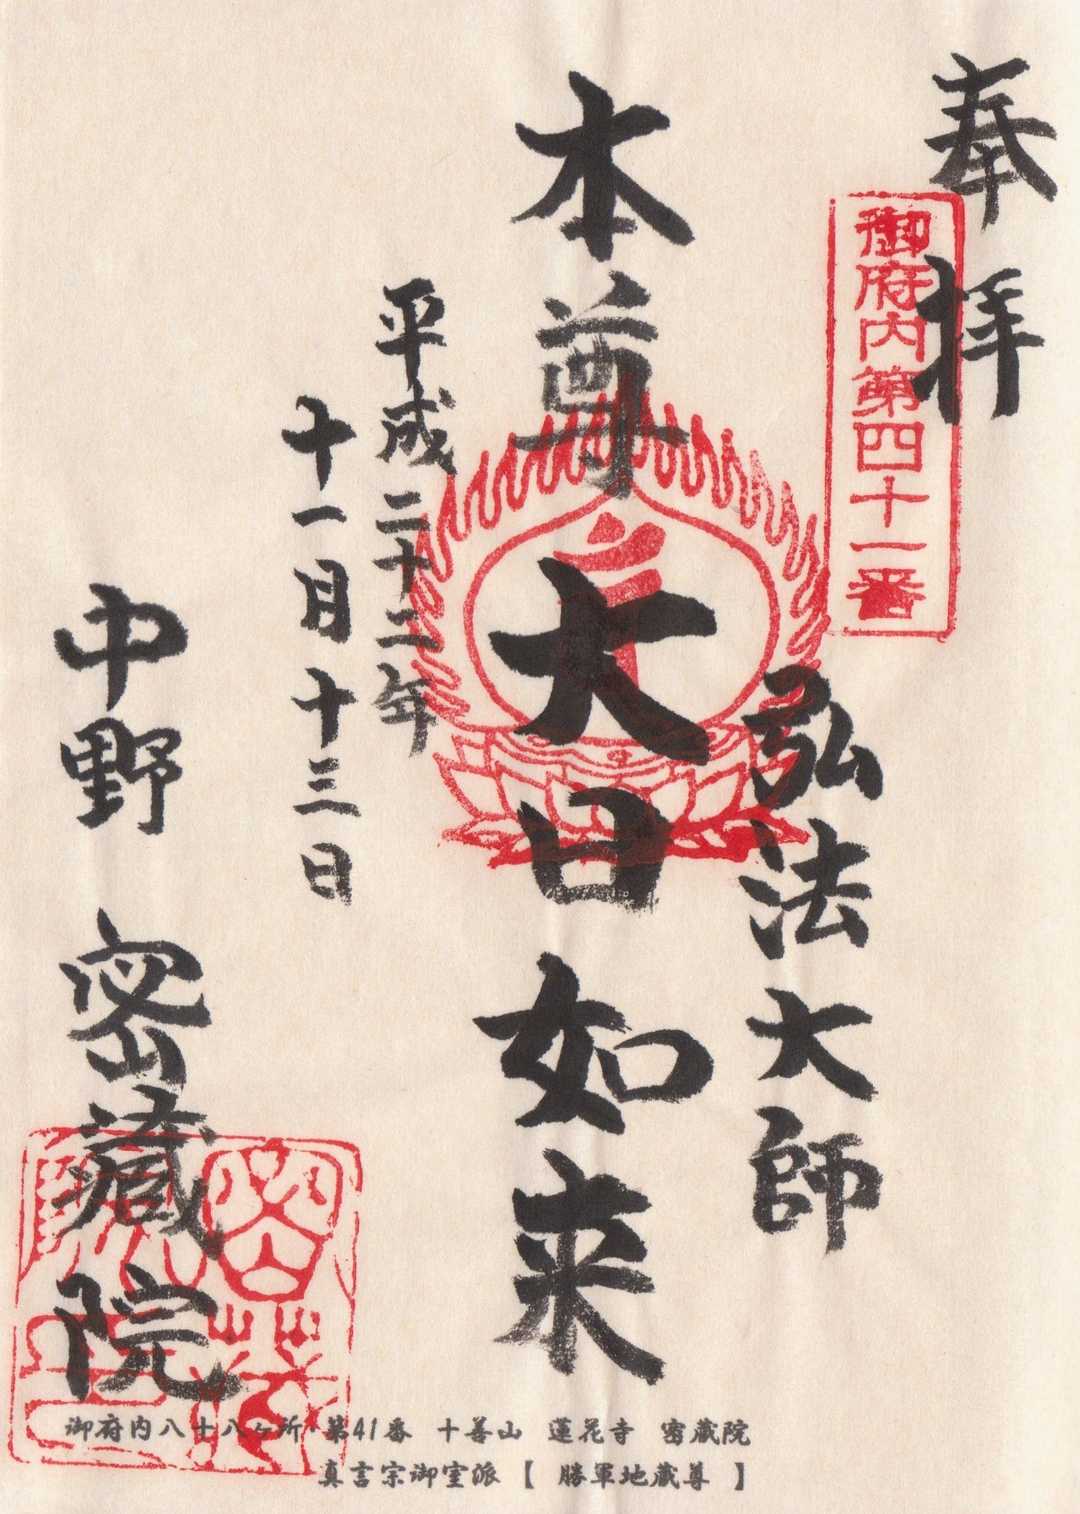 奉拝
御府内第四十一番
弘法大師
本尊大日如来
平成二十二年
十一月十三日
中野 密蔵院
御府内八十八ヶ所 第41番 十善山 蓮花寺 密蔵院
真言宗御室派 【 勝軍地蔵尊 】